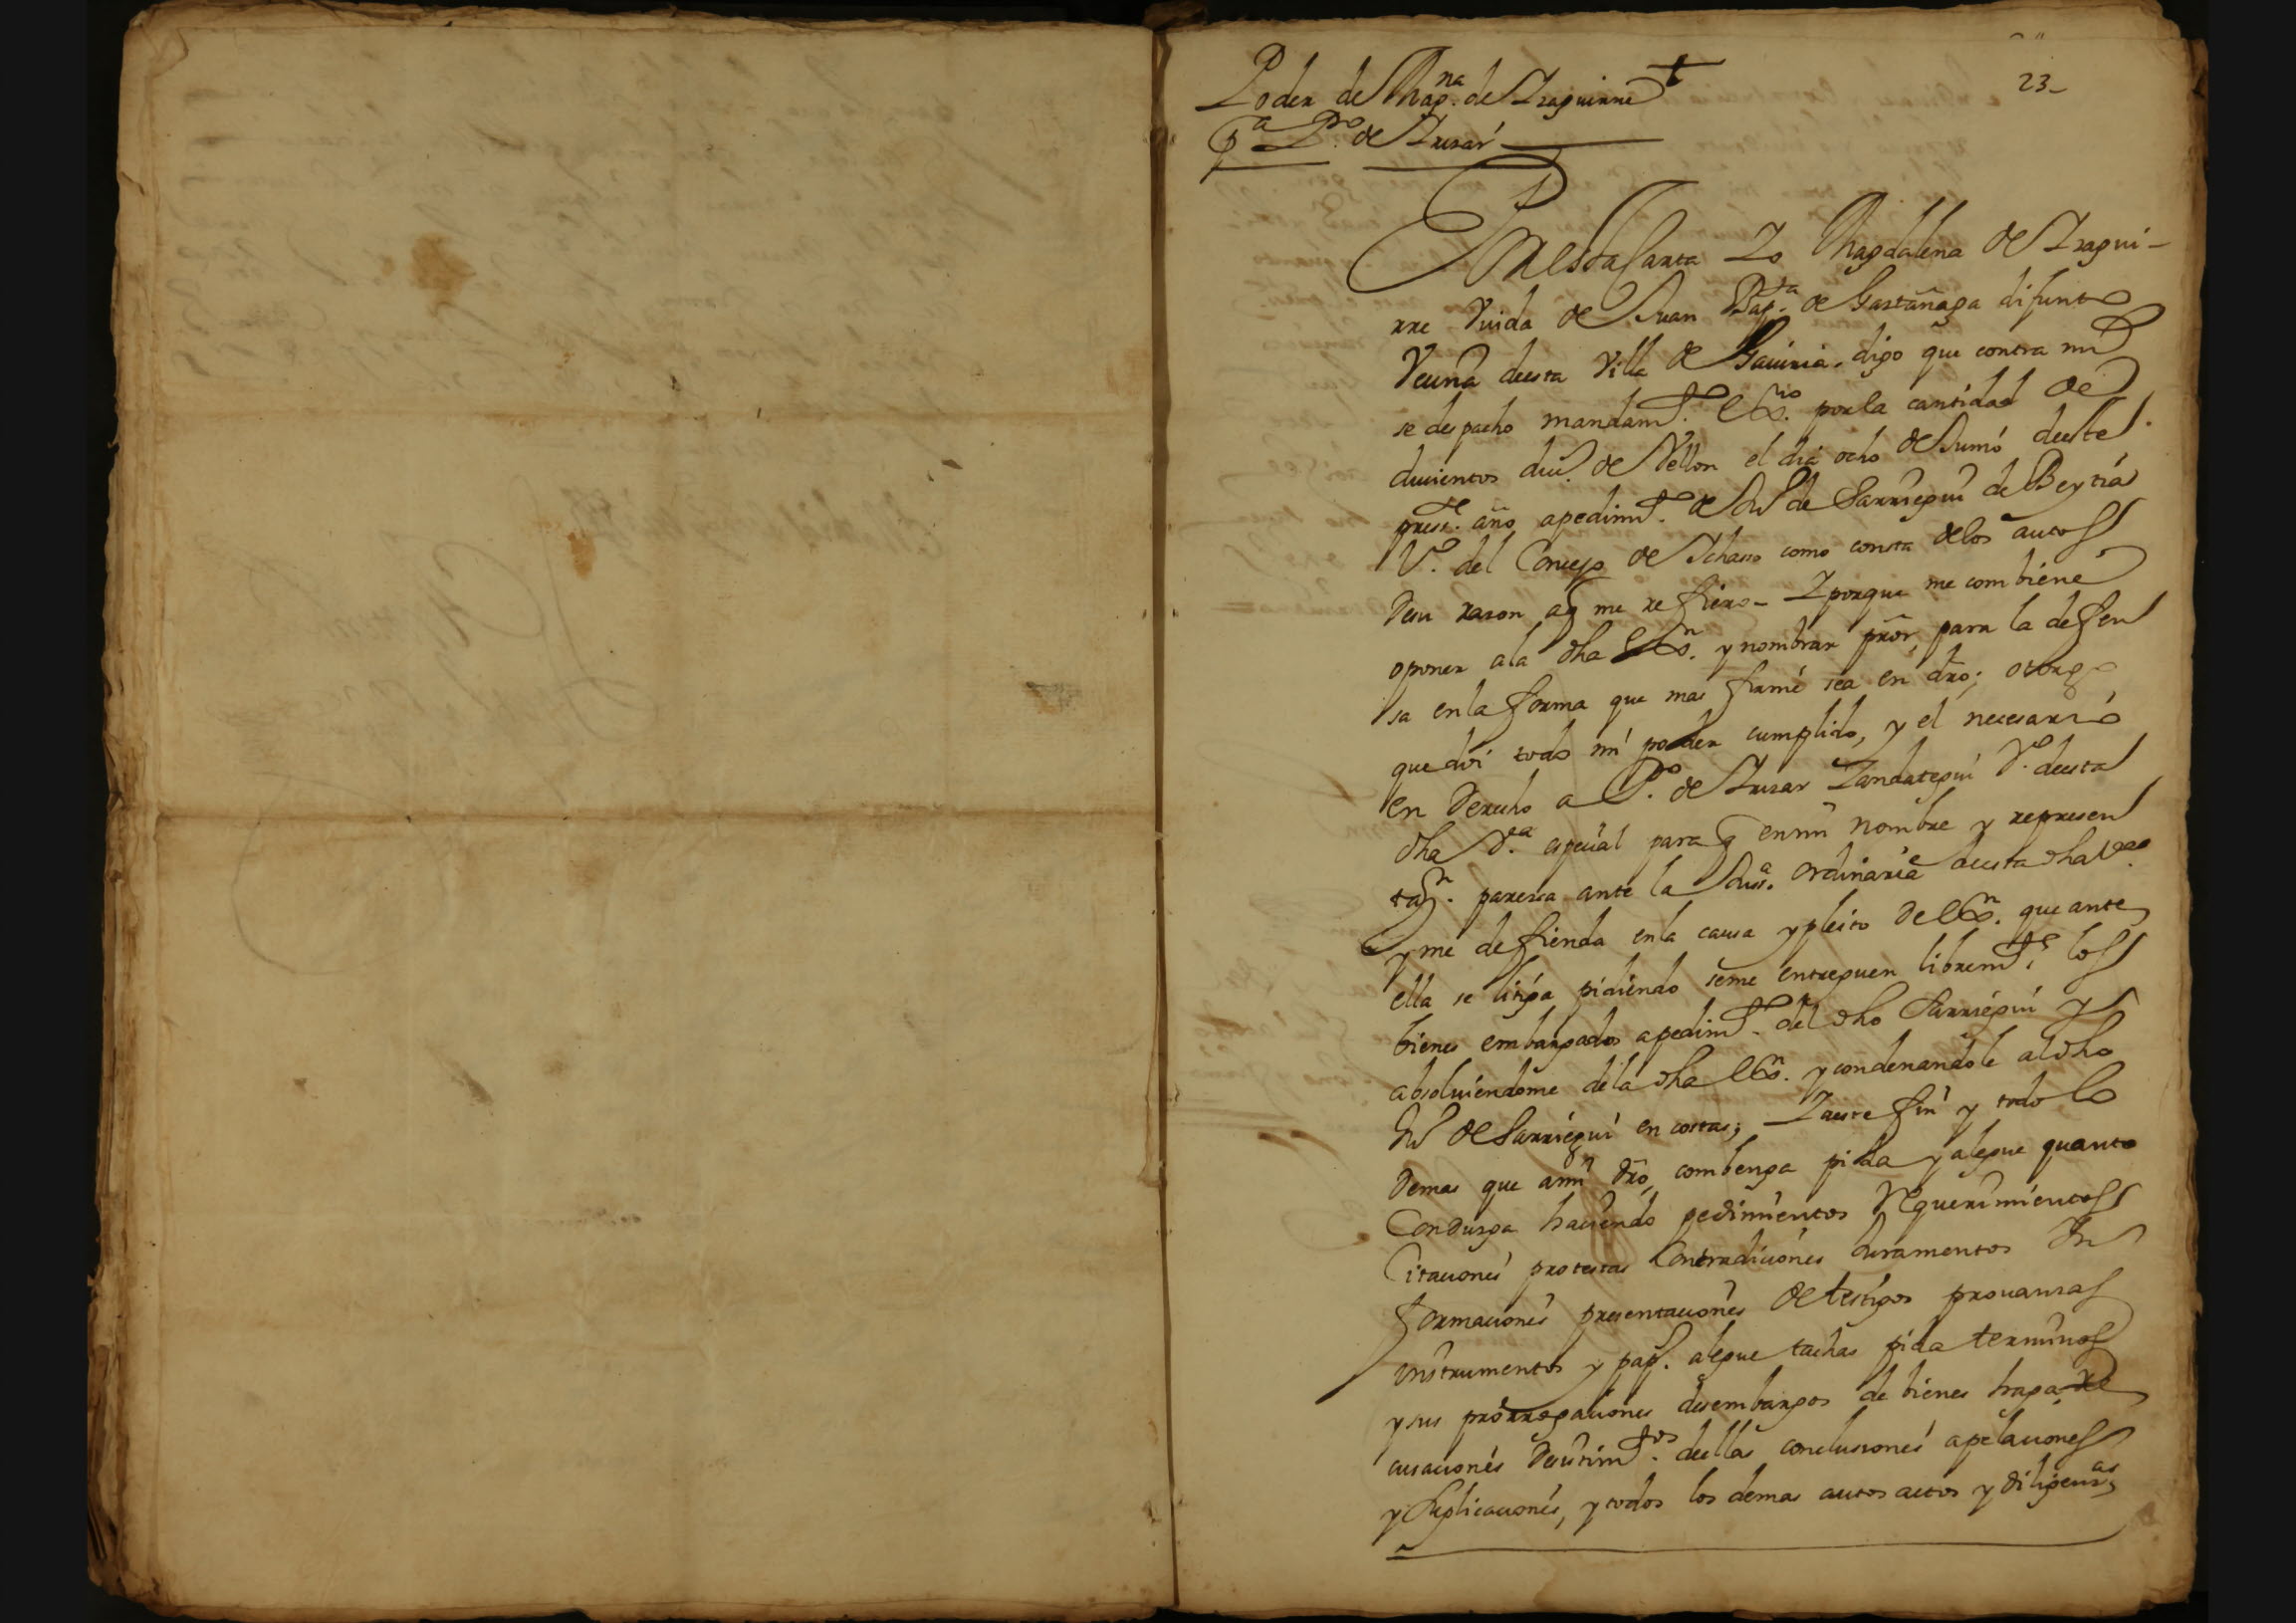 23_
Poder de Mag.na de Yraguirre
p.a P.o de Yrizar
En esta Carta Yo Magdalena de Yragui-
rre Viuda de Juan Bap.ta de Gastañaga difunto
Vecina desta Villa de Gauiria, digo que contra mi
se despacho mandam.to ex.rio por la cantidad de
ducientos duc.s de Vellon el dia ocho de Junio deeste
press.te año, a pedim.to de de Sarriegui de Beytia
V.o del Concejo de Ychasso como consta de los autos
desu razon a q me refiero - Y porque me combiene
oponer ala dha ex.n y nombrar pror, para la defen
sa en la forma que mas firme sea en dro; otorgo
que doi todo mi poder cumplido, y el necesario
en Derecho a P.o de Yrizar Zandategui V.o deesta
dha V.a especial para q en mi nombre y represen
taz.n parezca ante la Jus.a ordinaria deesta dha V.a
y me defienda en la causa y pleito de ex.n que ante
ella se litiga pidiendo seme entreguen librem.te los
bienes embargados a pedim.to del dho Sarriegui y
absoluiendome de la dha ex.n y condenandole al dho
de Sarriegui en costas; Y a este fin y todo lo
demas que a mi dro, combenga pida y alegue quanto
Conduzga haciendo pedimientos Requerimientos
Citaciones protestas Contradiciones Juramentos In
formaciones presentaciones de testigos prouanzas
instrumentos y pap.s alegue tachas pida terminos
y sus prorrogaciones desembargos de bienes haga re
cusaciones desistim.tos deellas conclusiones apelaciones
y suplicaciones, y todos los demas autos actos y diligencias